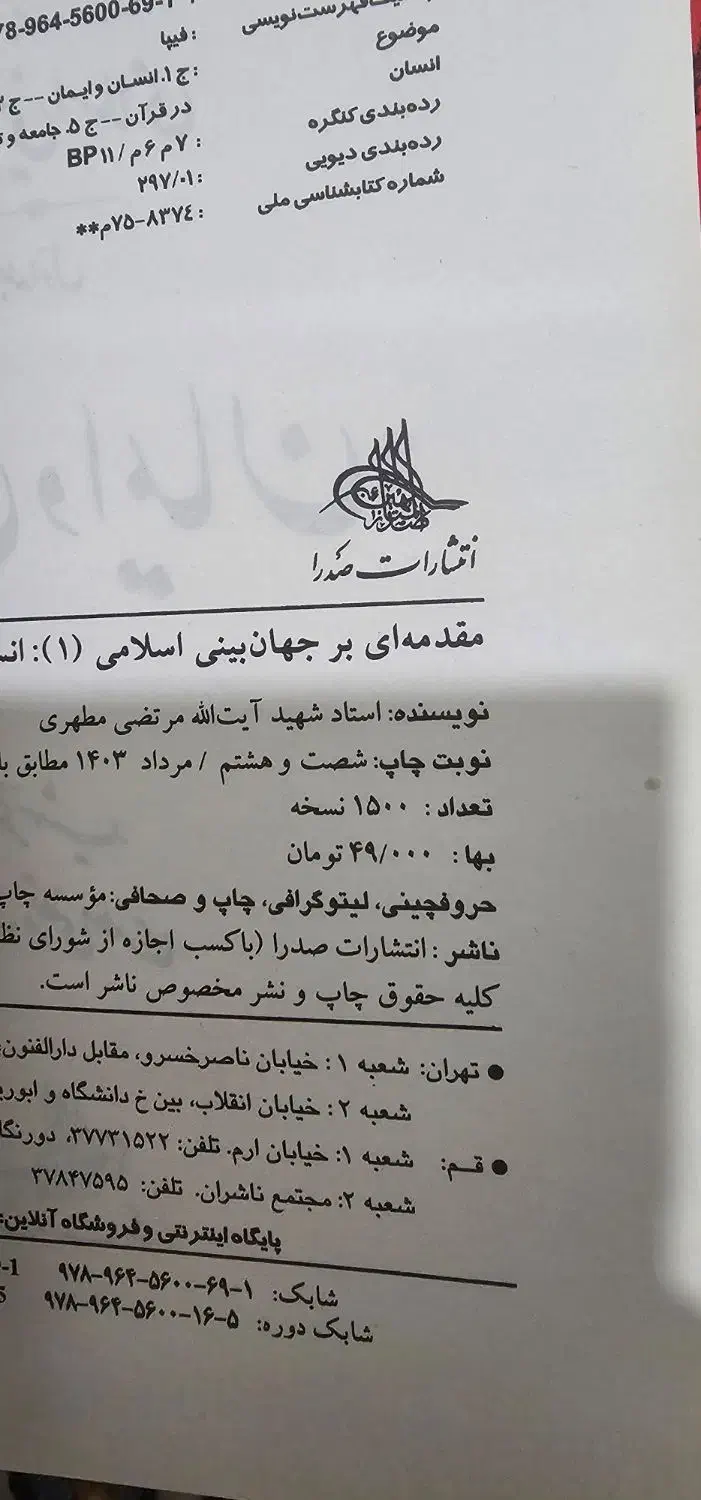 978-964-5600-69-1
فهرست‌نویسی : فیپا
موضوع : ج ۱. انسان و ایمان -- ج
انسان در قرآن -- ج ۵. جامعه و
رده‌بندی کنگره : ۷م ۶م / BP۱۱
رده‌بندی دیویی : ۲۹۷/۰۱
شماره کتابشناسی ملی : ۸۳۷٤-۷۵م**
انتشارات صدرا
مقدمه‌ای بر جهان‌بینی اسلامی (۱):
نویسنده: استاد شهید آیت‌الله مرتضی مطهری
نوبت چاپ: شصت و هشتم / مرداد ۱۴۰۳ مطابق
تعداد : ۱۵۰۰ نسخه
بها : ۴۹/۰۰۰ تومان
حروفچینی، لیتوگرافی، چاپ و صحافی: مؤسسه چاپ
ناشر : انتشارات صدرا (باکسب اجازه از شورای
کلیه حقوق چاپ و نشر مخصوص ناشر است.
● تهران: شعبه ۱ : خیابان ناصرخسرو، مقابل دارالفنون،
شعبه ۲ : خیابان انقلاب، بین خ دانشگاه و
● قـم: شعبه ۱: خیابان ارم. تلفن: ۳۷۷۳۱۵۲۲،
شعبه ۲: مجتمع ناشران. تلفن: ۳۷۸۴۷۵۹۵
پایگاه اینترنتی و فروشگاه آنلاین:
شابک: ۱-۶۹-۵۶۰۰-۹۶۴-۹۷۸ -1
شابک دوره: ۵-۱۶-۵۶۰۰-۹۶۴-۹۷۸ 5